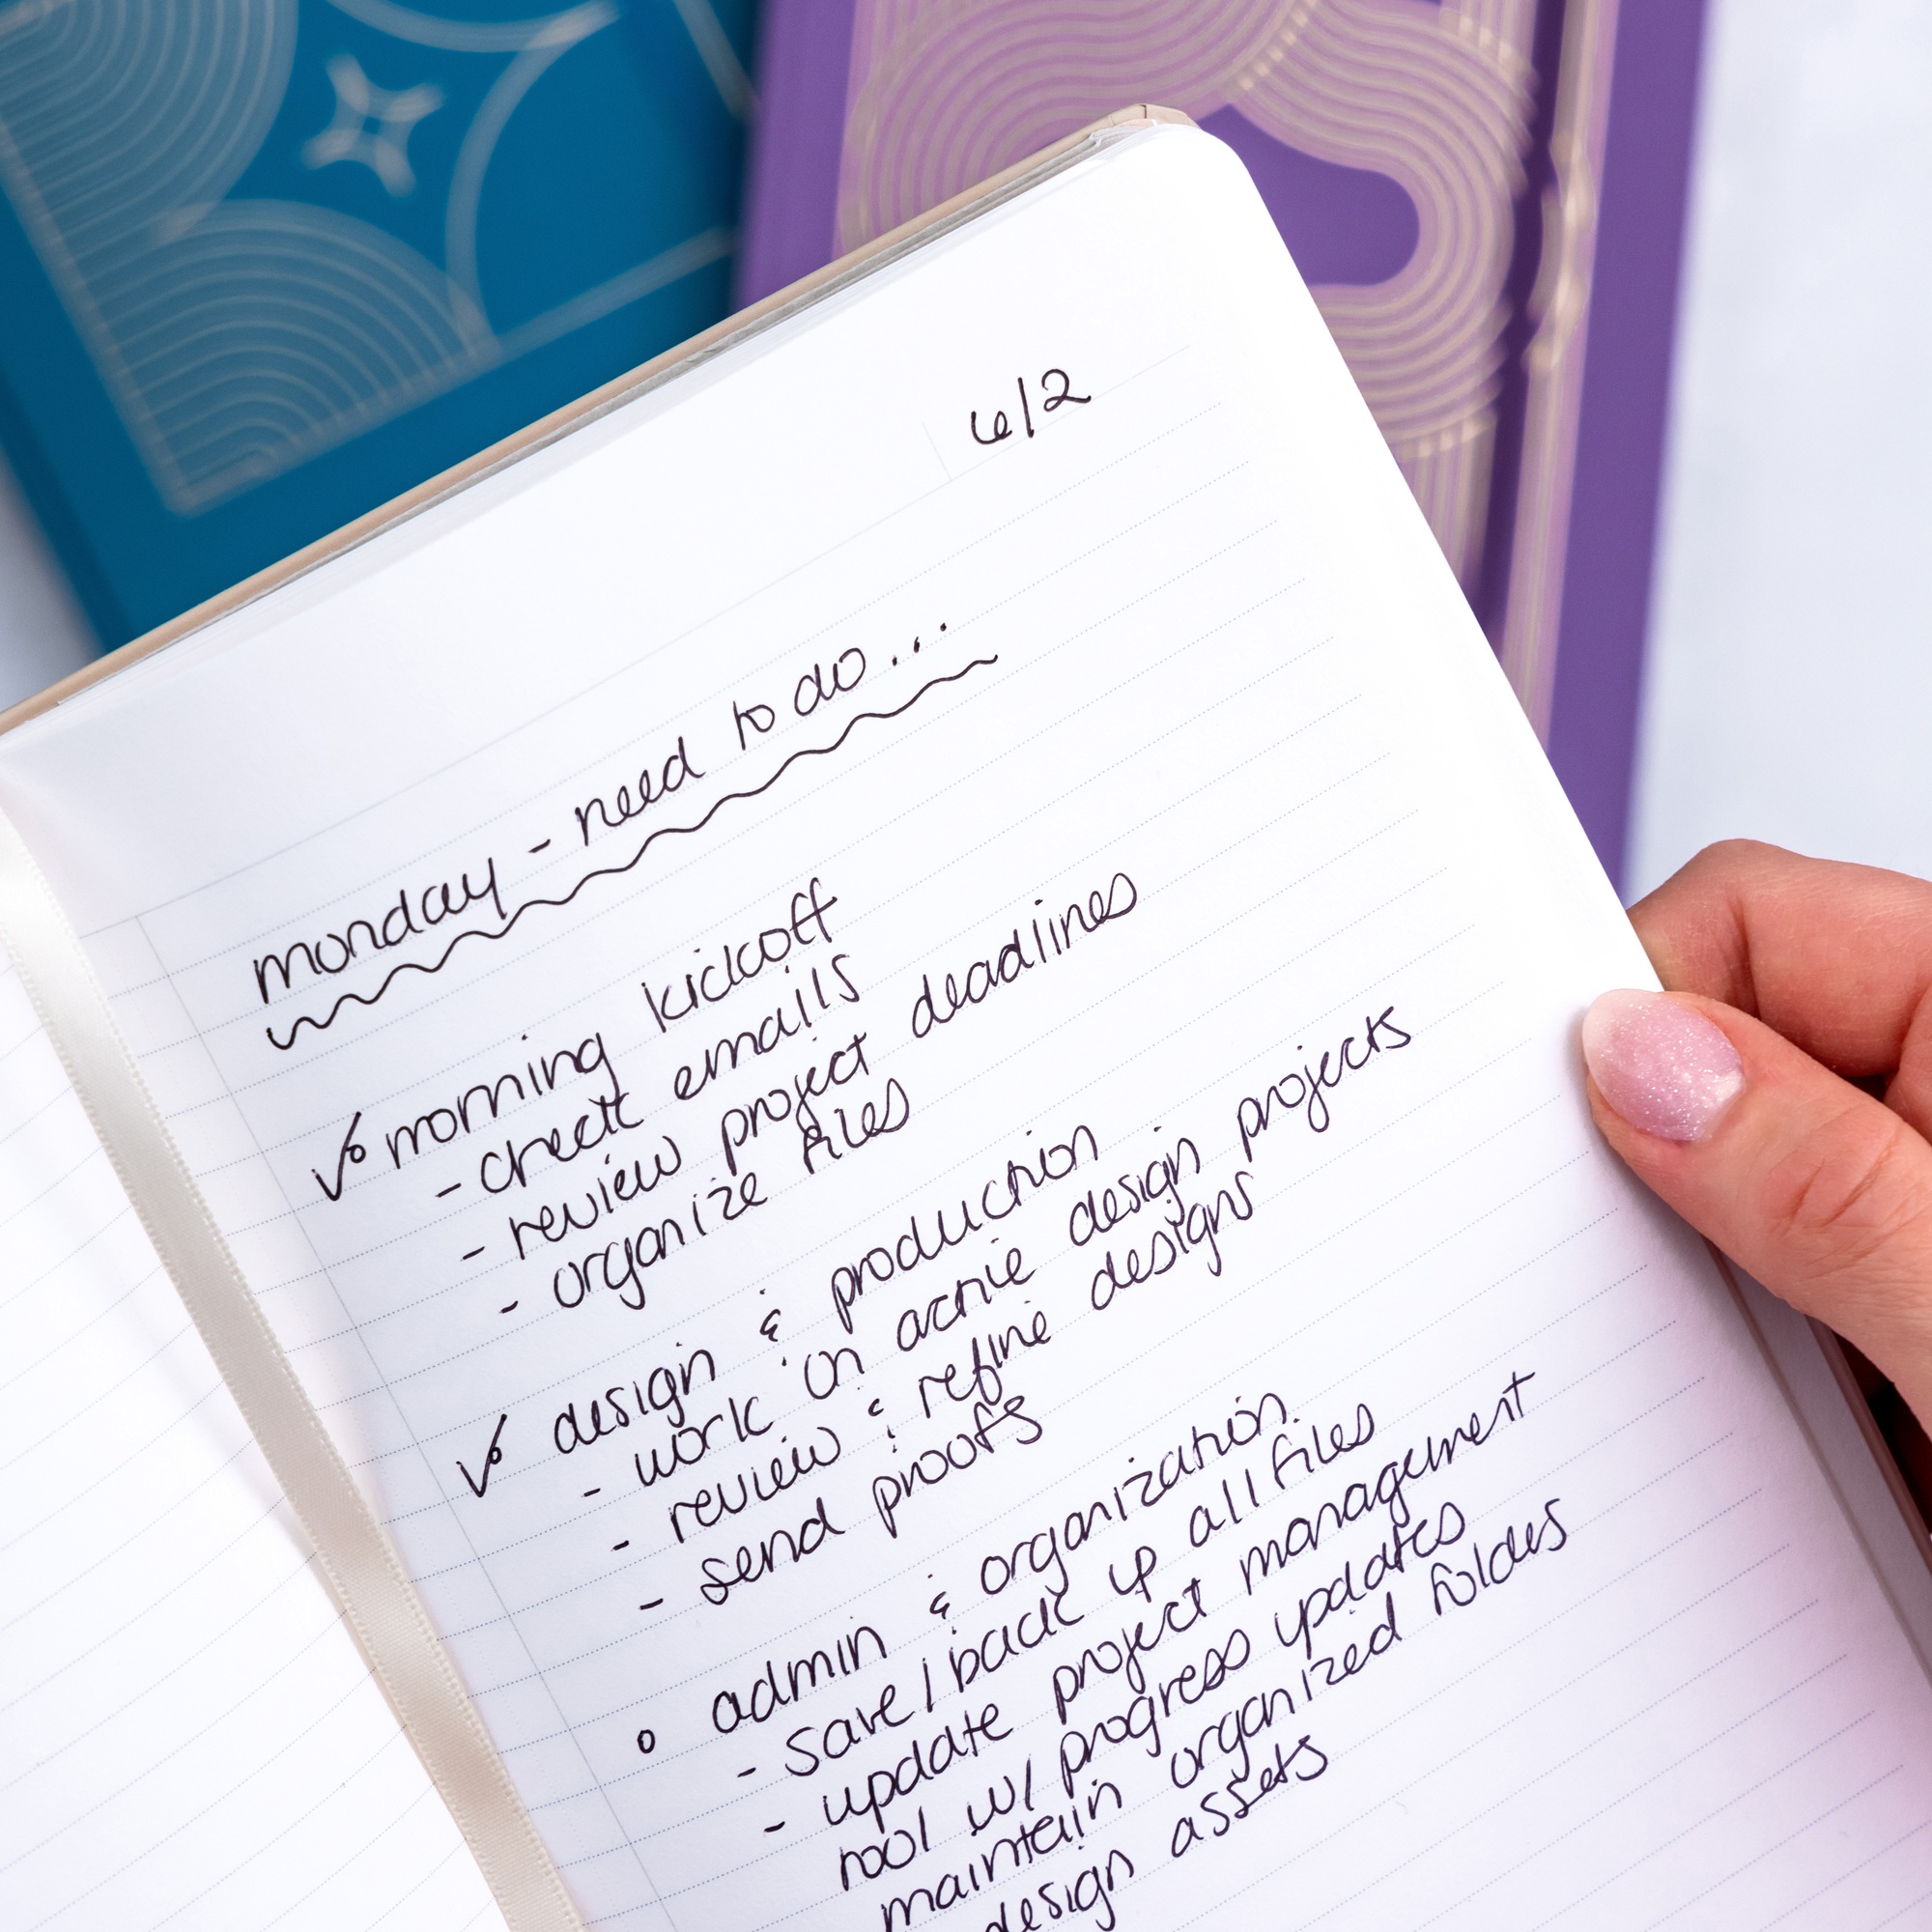 6/2
monday - need to do...
✓ morning kickoff
- check emails
- review project deadlines
- organize files
✓ design & production
- work on active design projects
- review & refine designs
- send proofs
o admin & organization
- save / back up all files
- update project management
tool w/ progress updates
maintain organized folders
design assets